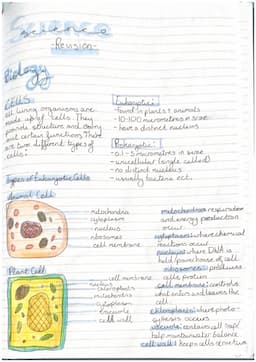 Science
-Revision-
Biology
Cells
All living organisms are
made up of cells. They
provide structure and carry
out certain functions. There
are two different types of
cells:
Eukaryotic:
- found in plants & animals
- 10-100 micrometres in size
- have a distinct nucleus
Prokaryotic:
- 0.1-5 micrometres in size
- unicellular (single celled)
- no distinct nucleus
- usually bacteria ect.
Types of Eukaryotic Cells
Animal Cell
mitochondria
cytoplasm
nucleus
ribosomes
cell membrane
mitochondria: respiration
and energy production
occur
cytoplasm: where chemical
reactions occur
nucleus: where DNA is
held/ of cell
ribosomes: produces
protein
cell membrane: controls
what enters and leaves the
cell
chloroplasts: where photo-
synthesis occurs
vacuole: contains cell sap/
help maintain balance
cell wall: keeps cells structure
Plant Cell
cell membrane
nucleus
chloroplasts
mitochondria
cytoplasm
vacuole
cell wall